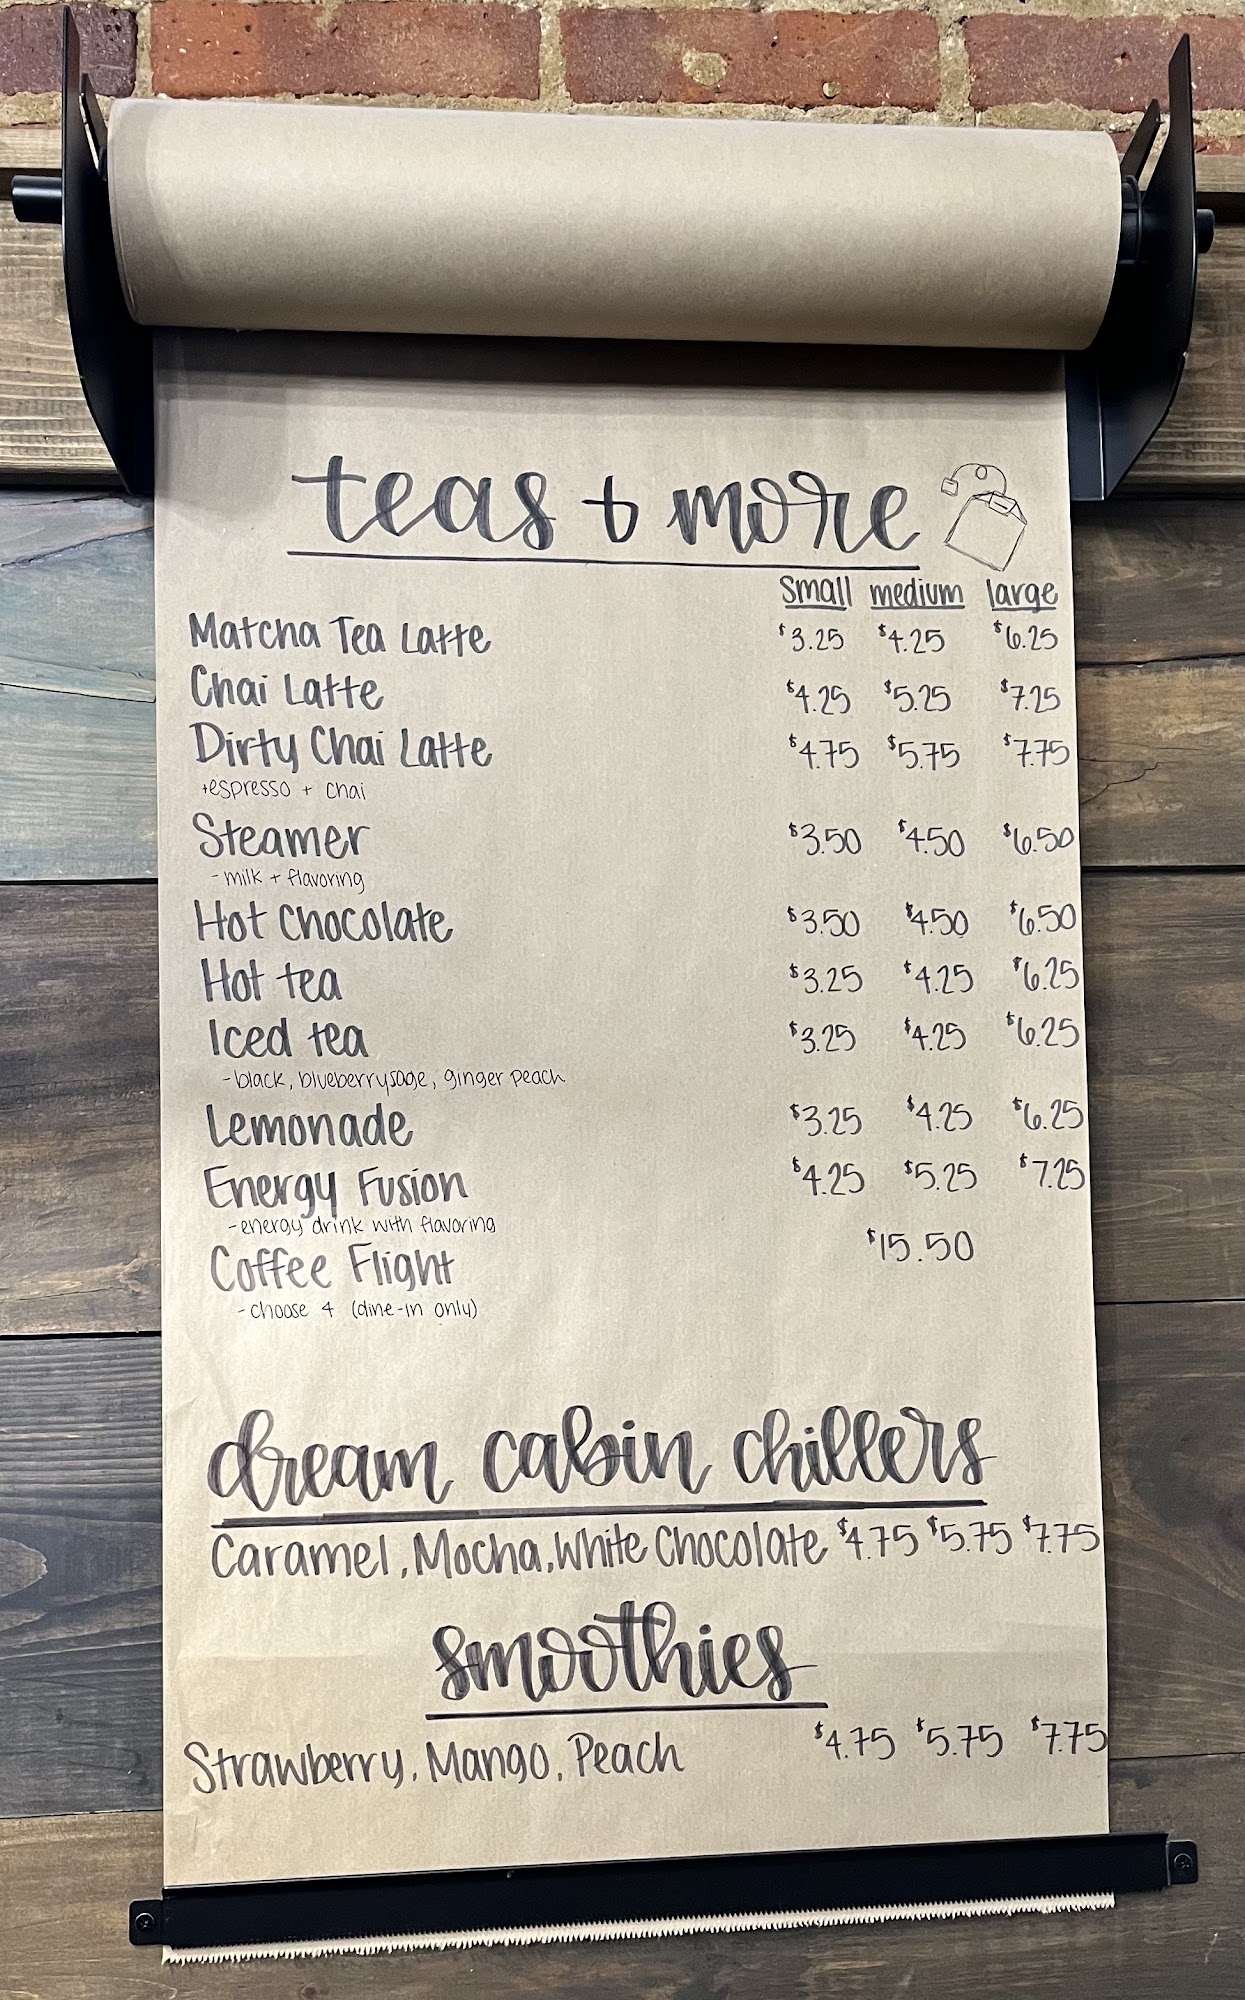 teas + more
small medium large
Matcha Tea Latte $3.25 $4.25 $6.25
Chai Latte $4.25 $5.25 $7.25
Dirty Chai Latte $4.75 $5.75 $7.75
+espresso + chai
Steamer $3.50 $4.50 $6.50
- milk + flavoring
Hot Chocolate $3.50 $4.50 $6.50
Hot tea $3.25 $4.25 $6.25
Iced tea $3.25 $4.25 $6.25
- black, blueberrysage, ginger peach
Lemonade $3.25 $4.25 $6.25
Energy Fusion $4.25 $5.25 $7.25
- energy drink with flavoring
Coffee Flight $15.50
- choose 4 (dine-in only)
dream cabin chillers
Caramel, Mocha, White Chocolate $4.75 $5.75 $7.75
smoothies
Strawberry, Mango, Peach $4.75 $5.75 $7.75